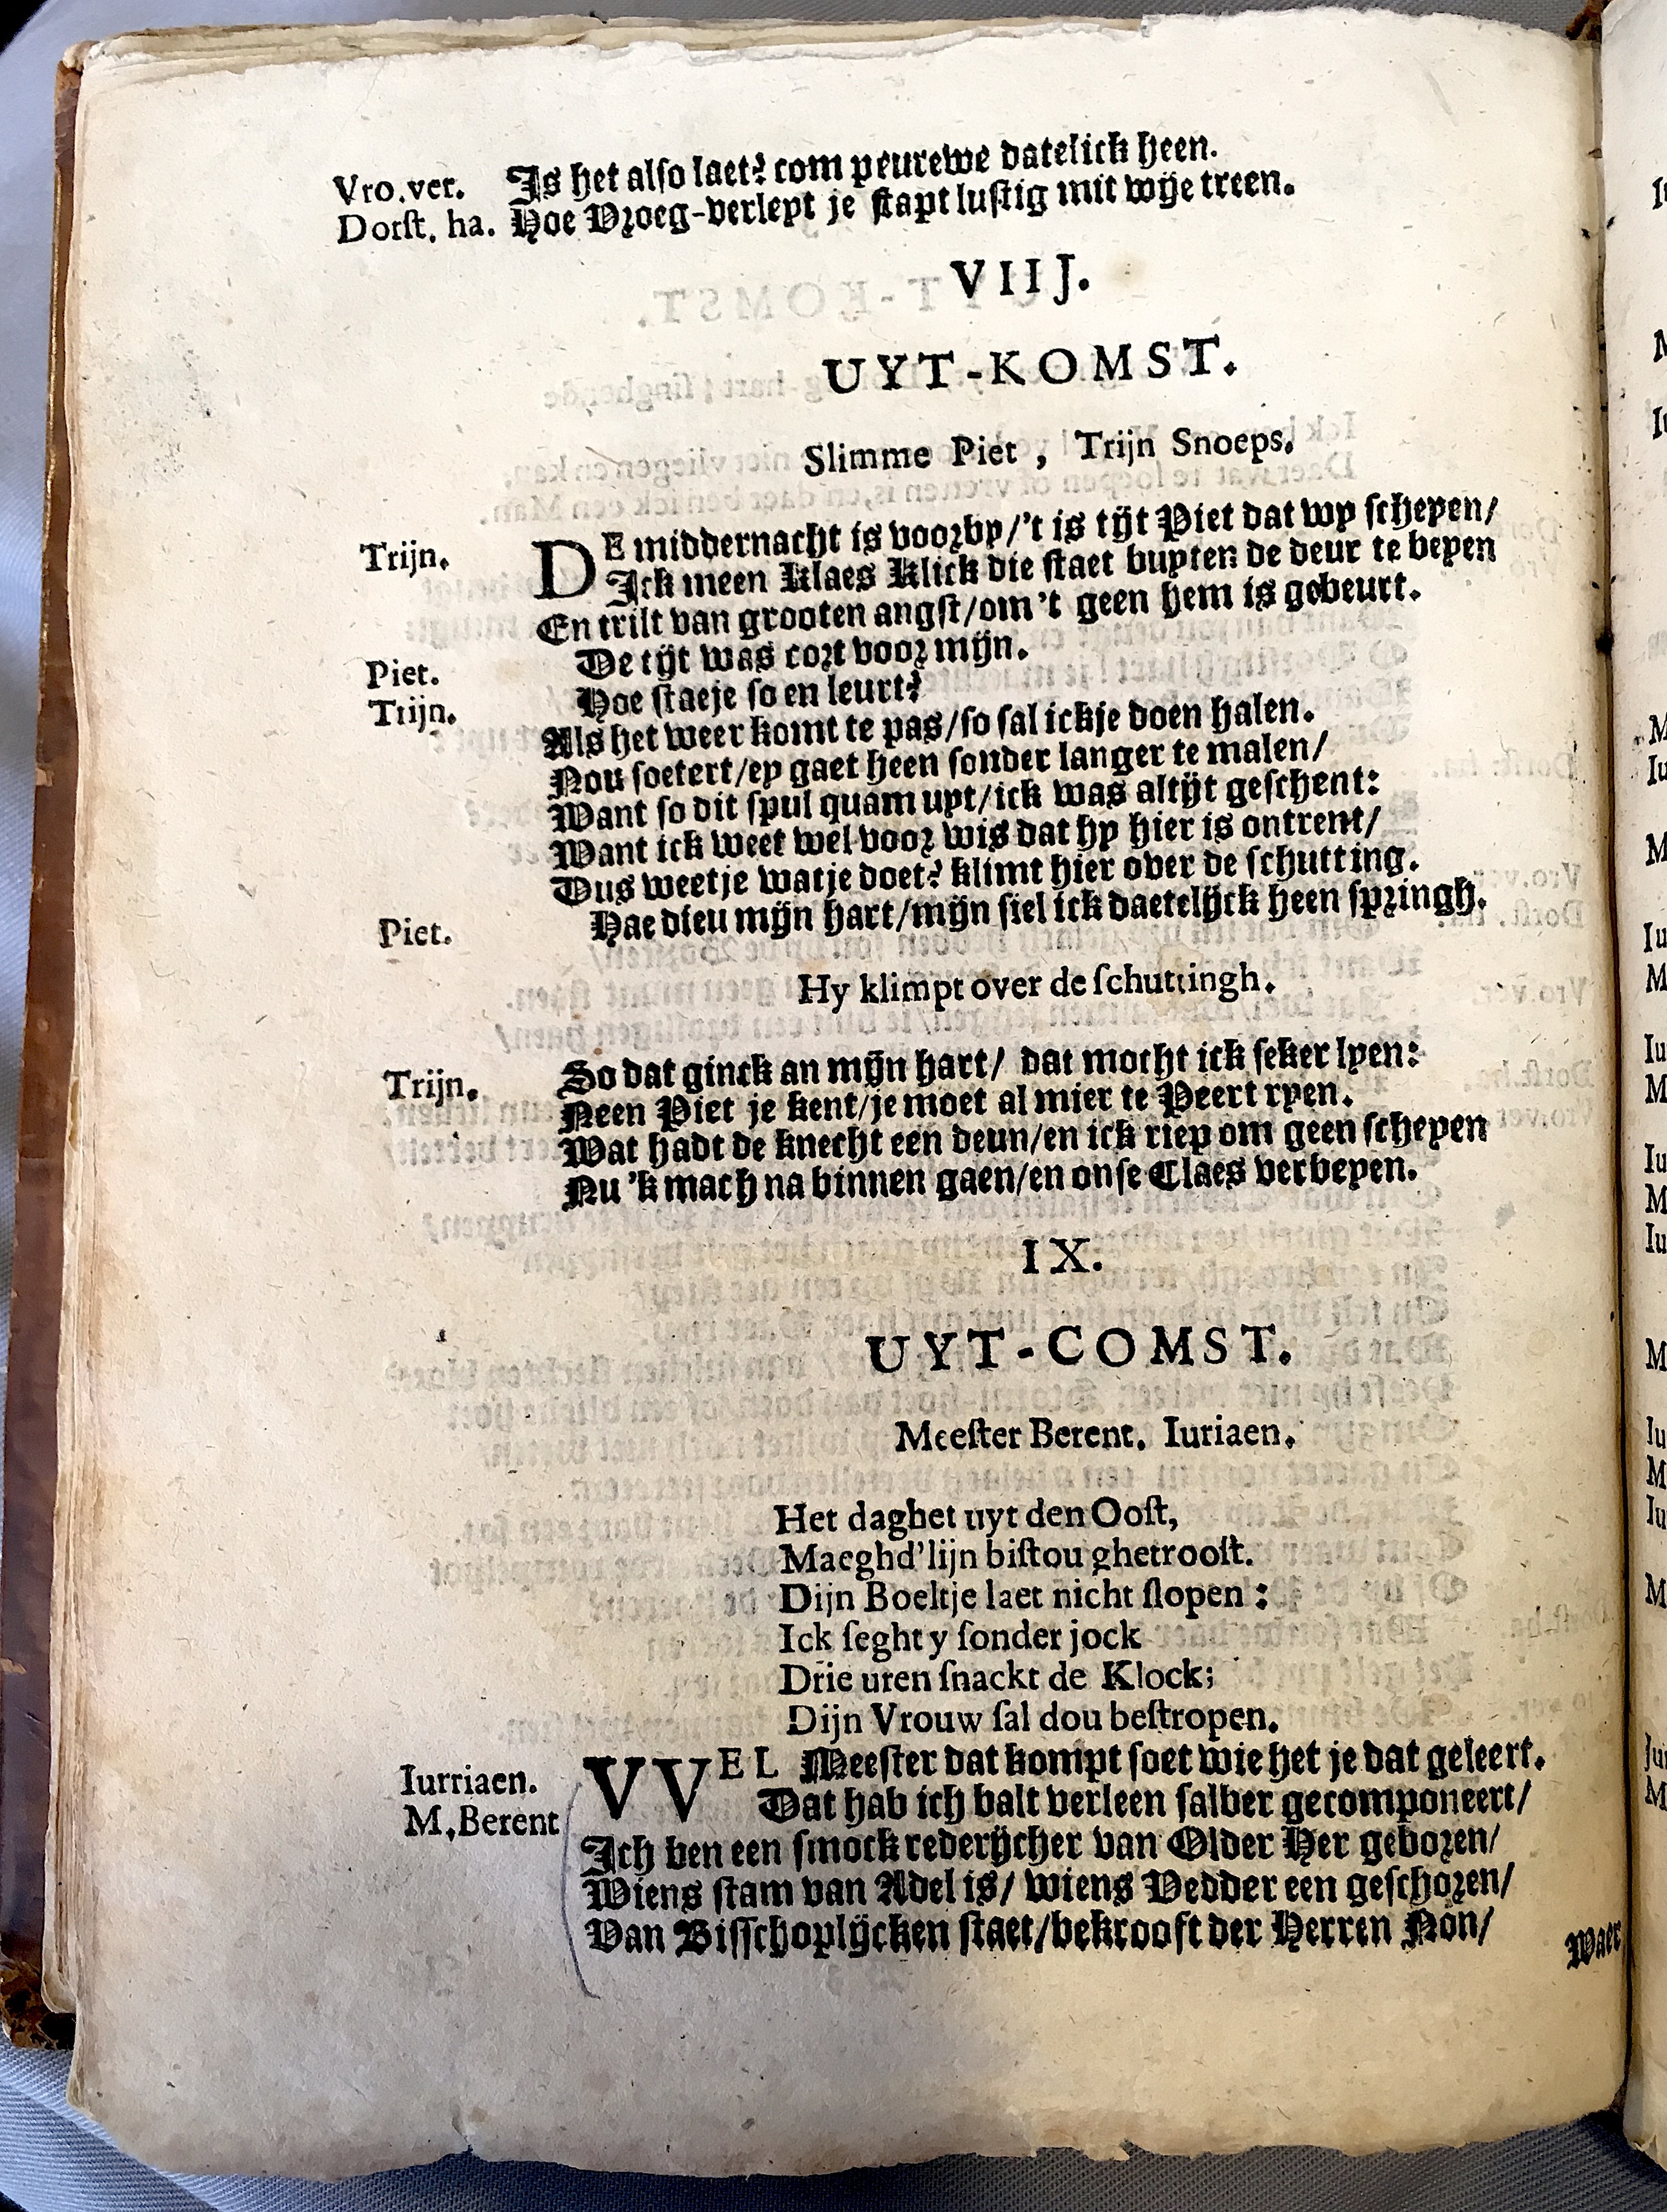 Vro.ver. Is het alſo laet? com peurewe datelick heen.
Dorſt. ha. Hoe Vroeg-verleyt je ſtapt luſtig mit wÿe treen.
VIIJ.
UYT-KOMST.
Slimme Piet, Trijn Snoeps.
Trijn. DE middernacht is voorby/'t is tÿt Piet dat wy ſcheyen/
Ick meen Klaes Klick die ſtaet buyten de deur te beyen
En trilt van grooten angſt/om't geen hem is gebeurt.
Piet. De tÿt was cort voor mÿn.
Trijn. Hoe ſtaeje ſo en leurt?
Als het weer komt te pas/ſo ſal ickje doen halen.
Nou ſoetert/ey gaet heen ſonder langer te malen/
Want ſo dit ſpul quam uyt/ick was altÿt geſchent:
Want ick weet wel voor wis dat hy hier is ontrent/
Dus weetje watje doet? klimt hier over de ſchutting.
Piet. Hae dieu mÿn hart/mÿn ſiel ick daetelÿck heen ſpringh.
Hy klimpt over de ſchuttingh.
Trijn. So dat ginck an mÿn hart/ dat mocht ick ſeker lyen:
Neen Piet je kent/je moet al mier te Peert ryen.
Wat hadt de knecht een deun/en ick riep om geen ſcheyen
Nu 'k mach na binnen gaen/en onſe Claes verbeyen.
IX.
UYT-COMST.
Meeſter Berent. Iuriaen.
Het daghet uyt den Ooſt,
Maeghd'lijn biſtou ghetrooſt.
Dijn Boeltje laet nicht ſlopen:
Ick ſeght y ſonder jock
Drie uren ſnackt de Klock;
Dijn Vrouw ſal dou beſtropen.
Iurriaen. VVEL Meeſter dat kompt ſoet wie het je dat geleert.
M.Berent Dat hab ich balt verleen ſalver gecomponeert/
Ich ben een ſmock rederÿcher van Older Her geboren/
Wiens ſtam van Adel is/ wiens Vedder een geſchoren/
Van Biſſchoplÿcken ſtaet/bekrooft der Herren Non/
Waer